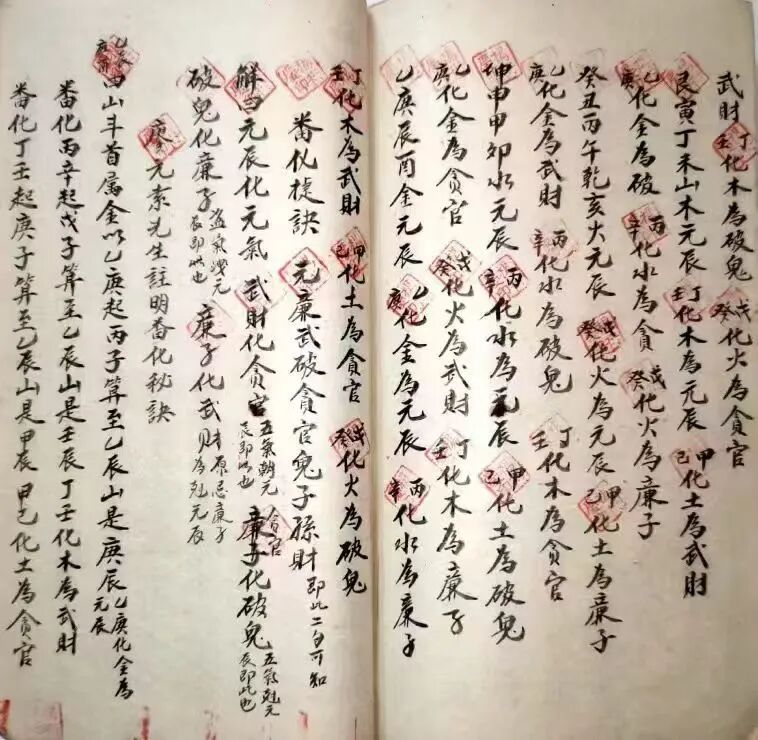 武財 丁壬化木為破鬼 戊癸化火為貪官
艮寅丁未山木元辰 丁壬化木為元辰 甲己化土為武財
乙庚化金為破 丙辛化水為貪 戊癸化火為廉子
癸丑丙午乾亥火元辰 戊癸化火為元辰 甲乙化土為廉子
乙庚化金為武財 丙辛化水為破鬼 丁壬化木為貪官
坤申甲卯水元辰 丙辛化水為元辰 甲己化土為破鬼
乙庚化金為貪官 戊癸化火為武財 丁壬化木為廉子
乙庚辰酉金元辰 乙庚化金為元辰 丙辛化水為廉子
丁壬化木為武財 甲己化土為貪官 戊癸化火為破鬼
番化捷訣 元廉武破貪官鬼子孫財 即此二句可知
解曰元辰化元氣 武財化貪官 五氣朝元辰即此也 貪官 廉子化破鬼 五氣剋元辰即此也
破鬼化廉子 盗氣洩元辰即此也 廉子化武財 原忌廉子為剋元辰
廖元素先生註明番化秘訣
乙辰庚酉四山斗首屬金以乙庚起丙子算至乙辰山是庚辰 乙庚化金為元辰
番化丙辛起戊子算至乙辰山是壬辰丁壬化木為武財
番化丁壬起庚子算至乙辰山是甲辰甲己化土為貪官